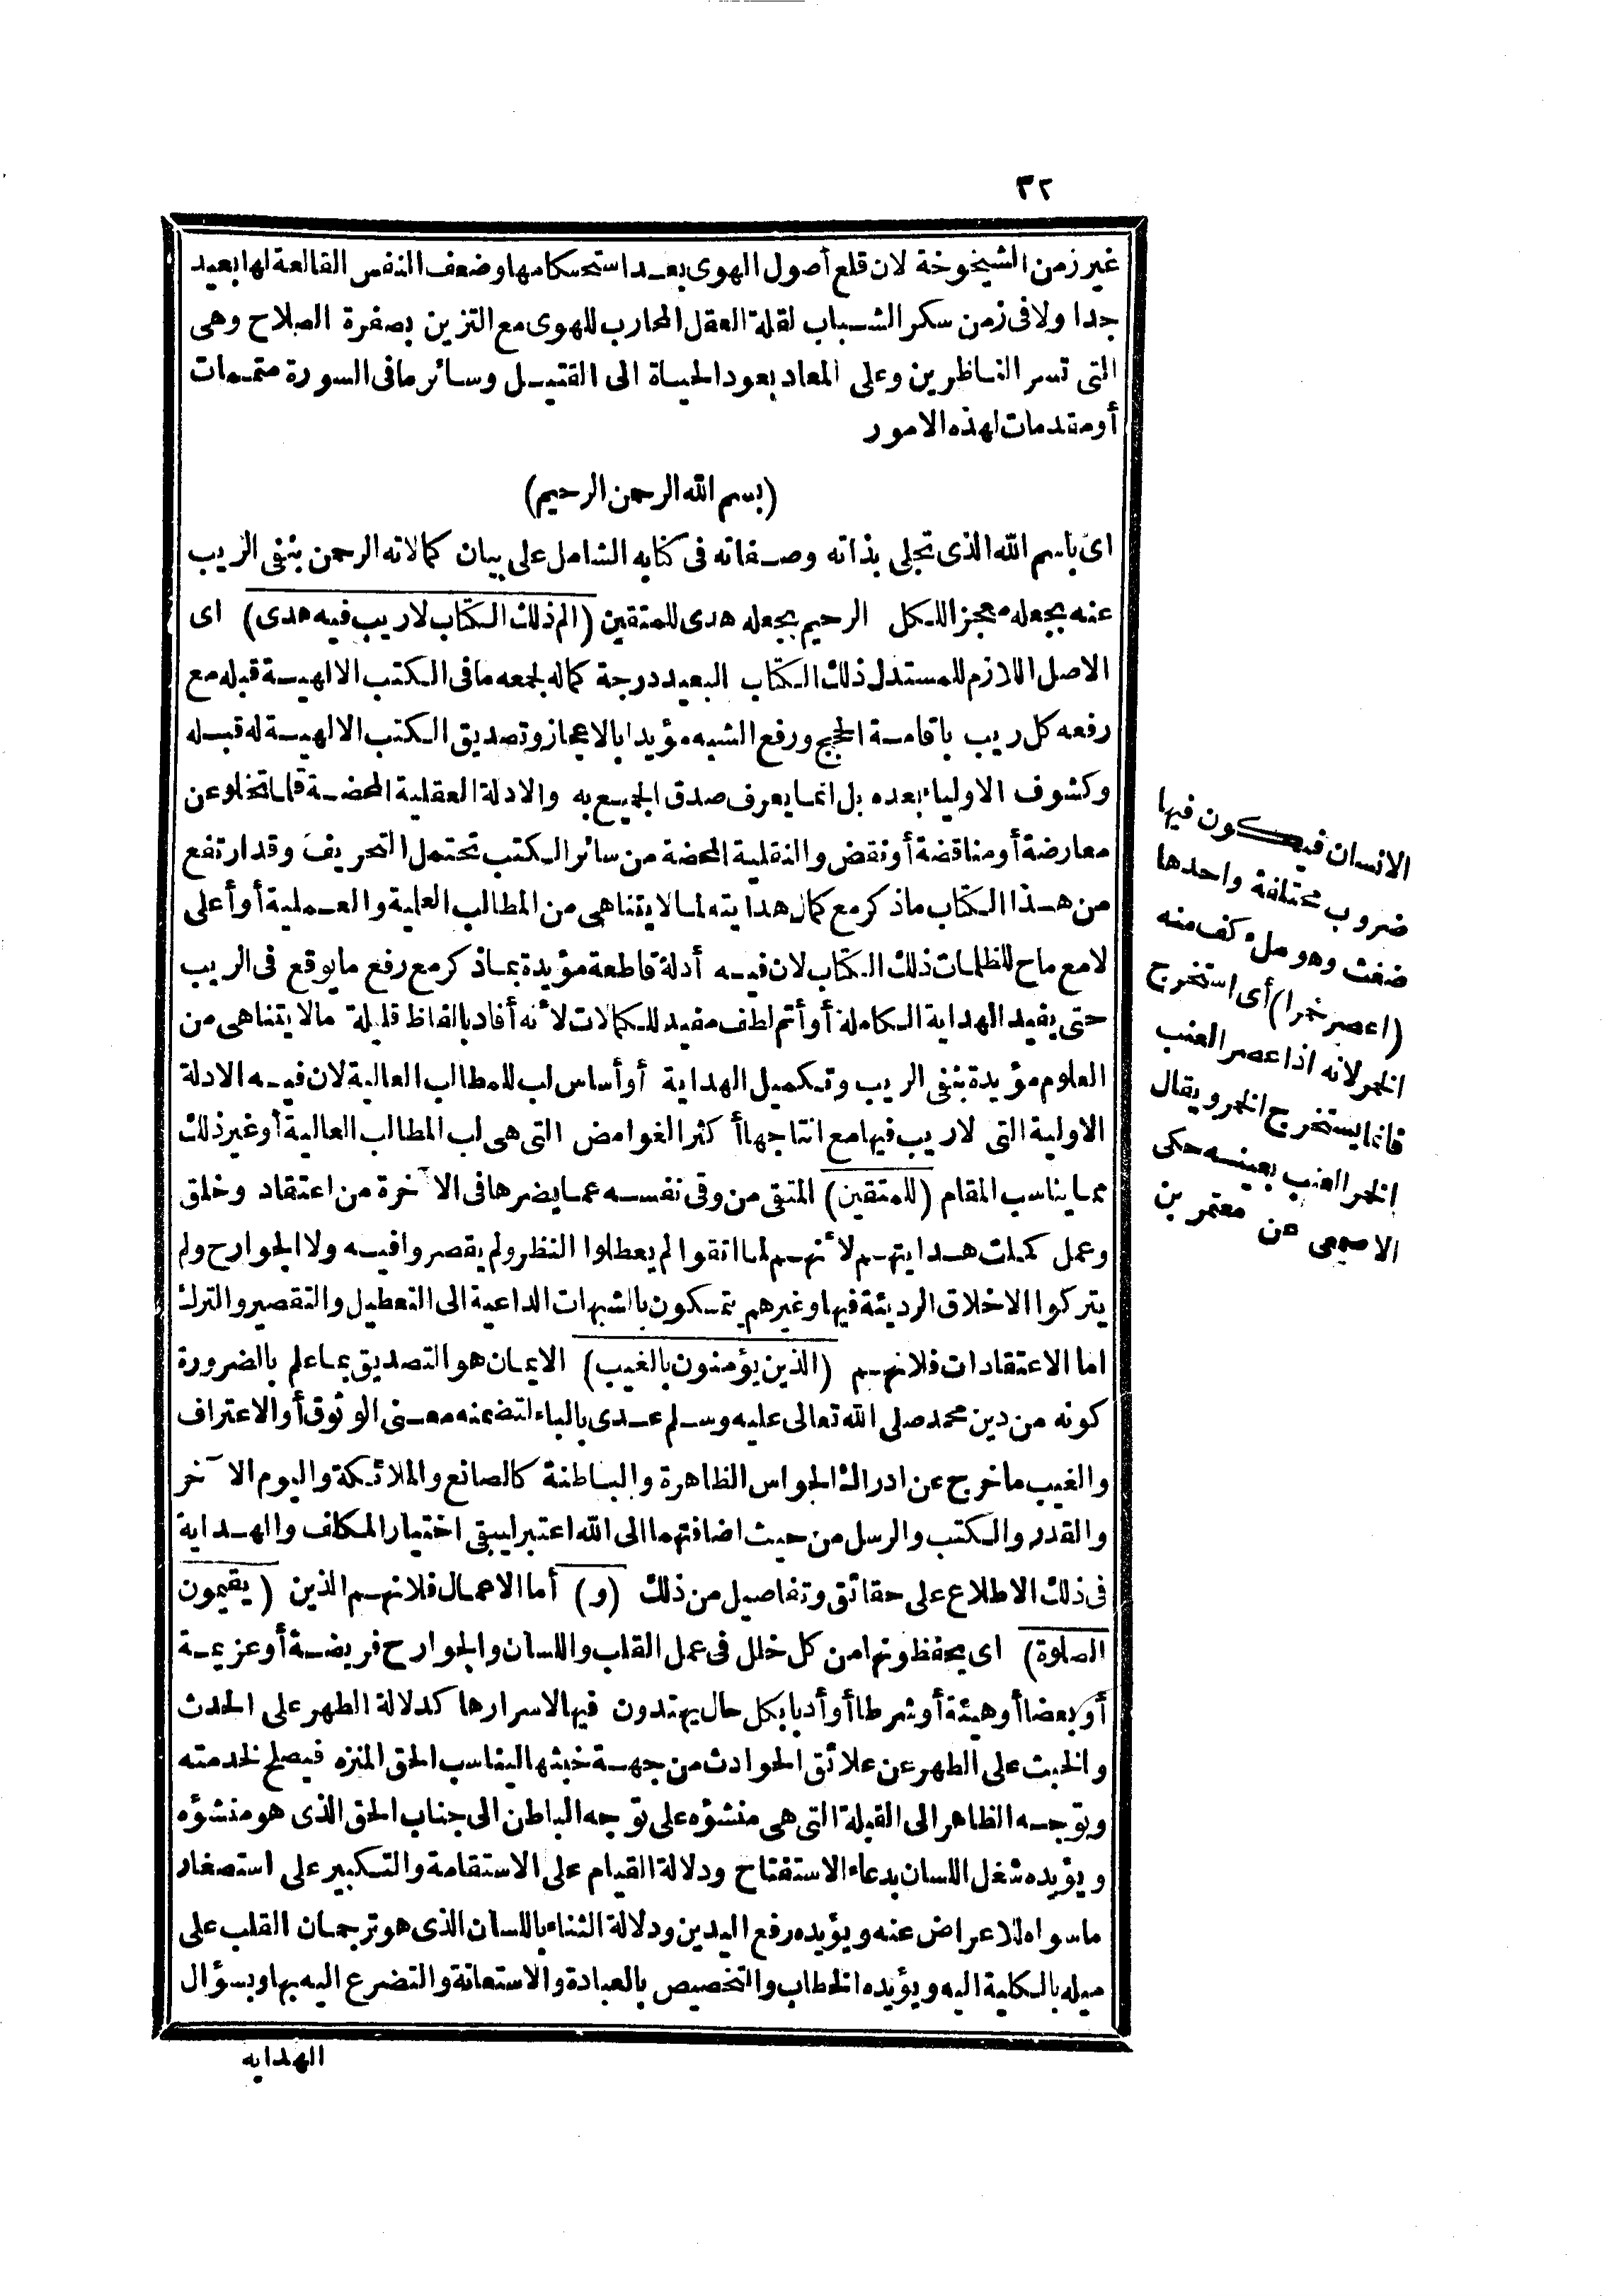 ٣٢
غير زمن الشيخوخة لان قلع أصول الهوى بعد استحكامها وضعف النفس القالعة لها بعيد
جدا ولا فى زمن سكر الشباب لقلة العقل المحارب للهوى مع التزين بصفرة الصلاح وهى
التى تسر الناظرين وعلى المعاد بعود الحياة الى القتيل وسائر ما فى السورة متممات
أو مقدمات لهذه الامور
(بسم الله الرحمن الرحيم)
اى باسم الله الذى تجلى بذاته وصفاته فى كتابه الشامل على بيان كمالاته الرحمن بنفى الريب
عنه بجعله معجز اللكل الرحيم بجعله هدى للمتقين (الم ذلك الكتاب لا ريب فيه هدى) اى
الاصل اللازم للمستدل ذلك الكتاب البعيد درجة كماله لجمعه ما فى الكتب الالهية قبله مع
رفعه كل ريب باقامة الحجج ورفع الشبه مؤيدا بالاعجاز وتصديق الكتب الالهية له قبله
وكشوف الاولياء بعده بل انما يعرف صدق الجميع به والادلة العقلية المحضة قلما تخلو عن
معارضة أو مناقضة أو نقض والنقلية المحضة من سائر الكتب تحتمل التحريف وقد ارتفع
من هذا الكتاب ما ذكر مع كمال هدايته لما لا يتناهى من المطالب العلمية والعملية أو أعلى
لامع ماح للظلمات ذلك الكتاب لان فيه أدلة قاطعة مؤيدة بما ذكر مع رفع ما يوقع فى الريب
حتى يفيد الهداية الكاملة أو أتم لطف مفيد للكمالات لأنه أفاد بالفاظ قليلة ما لا يتناهى من
العلوم مؤيدة بنفى الريب وتكميل الهداية أو أساس لب للمطالب العالية لان فيه الادلة
الاولية التى لا ريب فيها مع انتاجها أكثر الغوامض التى هى لب المطالب العالية أو غير ذلك
مما يناسب المقام (للمتقين) المتقى من وقى نفسه عما يضرها فى الآخرة من اعتقاد وخلق
وعمل كملت هدايتهم لأنهم لما اتقوا لم يعطلوا النظر ولم يقصروا فيه ولا الجوارح ولم
يتركوا الاخلاق الرديئة فيها وغيرهم يتمسكون بالشبهات الداعية الى التعطيل والتقصير والترك
اما الاعتقادات فلانهم (الذين يؤمنون بالغيب) الايمان هو التصديق بما علم بالضرورة
كونه من دين محمد صلى الله تعالى عليه وسلم عدى بالباء لتضمنه معنى الوثوق أو الاعتراف
والغيب ما خرج عن ادراك الحواس الظاهرة والباطنة كالصانع والملائكة واليوم الآخر
والقدر والكتب والرسل من حيث اضافتهما الى الله اعتبر ليبقى اختيار المكلف والهداية
فى ذلك الاطلاع على حقائق وتفاصيل من ذلك (و) أما الاعمال فلانهم الذين (يقيمون
الصلوة) اى يحفظونها من كل خلل فى عمل القلب واللسان والجوارح فريضة أو عزيمة
أو بعضا أو هيئة أو شرطا أو أدبا بكل حال يهتدون فيها لاسرارها كدلالة الطهر على الحدث
والخبث على الطهر عن علائق الحوادث من جهة خبثها ليناسب الحق المنزه فيصلح لخدمته
وتوجه الظاهر الى القبلة التى هى منشؤه على توجه الباطن الى جناب الحق الذى هو منشؤه
ويؤيده شغل اللسان بدعاء الاستفتاح ودلالة القيام على الاستقامة والتكبير على استصغار
ما سواه للاعراض عنه ويؤيده رفع اليدين ودلالة الثناء باللسان الذى هو ترجمان القلب على
ميله بالكلية اليه ويؤيده الخطاب والتخصيص بالعبادة والاستعانة والتضرع اليه بها وبسؤال
الهداية
الانسان فيكون فيها
ضروب مختلفة واحدها
ضغث وهو ملء كف منه
(اعصر خمرا) أى استخرج
الخمر لانه اذا عصر العنب
فانما يستخرج الخمر ويقال
الخمر العنب بعينه حكى
الاصمعى عن معتمر بن